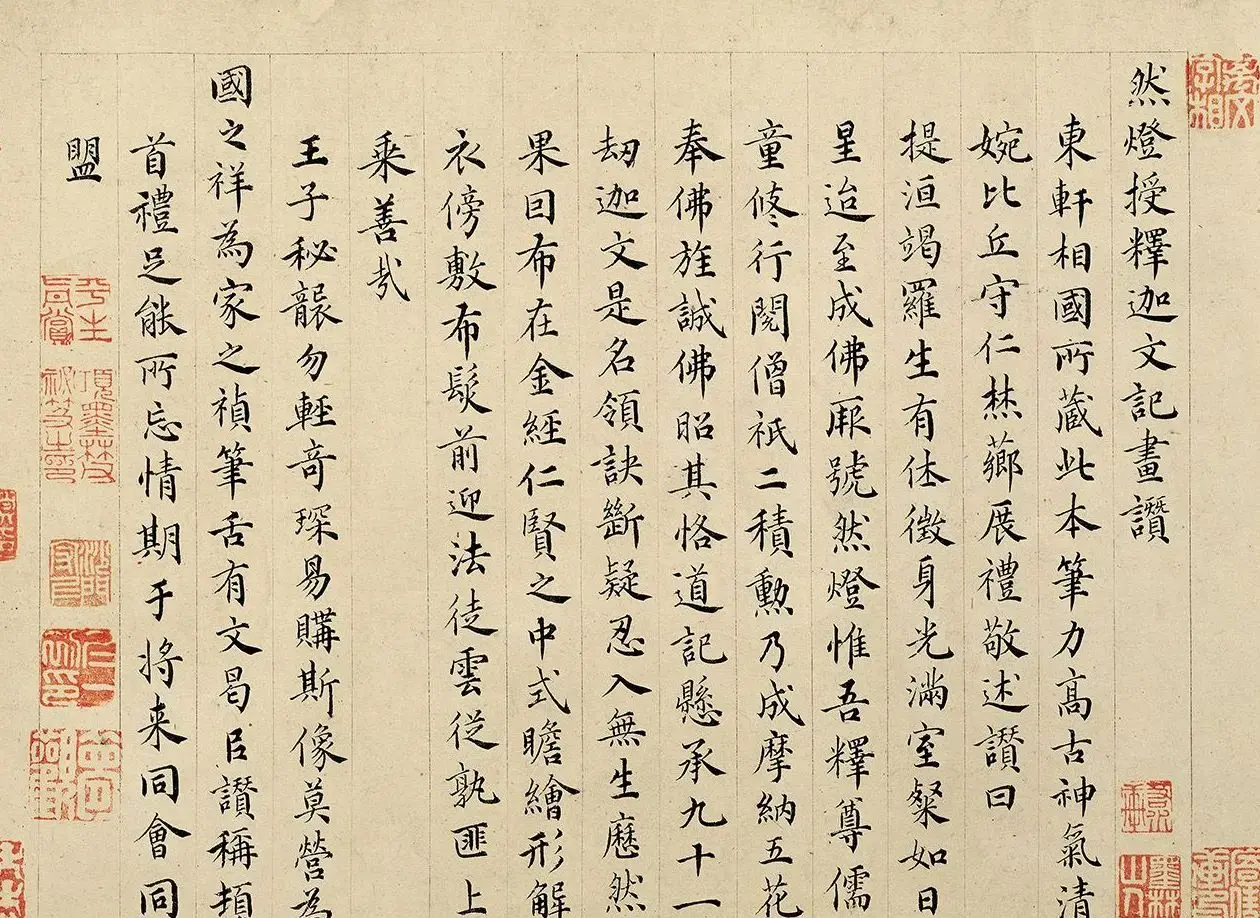 然燈授釋迦文記畫讚
東軒相國所蔵此本筆力髙古神氣清
婉比丘守仁焚薌展禮敬述讚曰
提洹竭羅生有休徵身光滿室粲如日
星迨至成佛厥號然燈惟吾釋尊儒
童修行閱僧祇二積勲乃成摩納五花
奉佛旌誠佛昭其恪道記懸承九十一
劫迦文是名領訣斷疑忍入無生歷然
果回布在金經仁賢之中式瞻繪形解
衣傍敷布髮前迎法徒雲從孰匪上
乘善哉
王子秘襲勿輕竒琛易購斯像莫營為
國之祥為家之禎筆舌有文曷臣讚稱頫
首禮足能所忘情期于將来同會同
盟
平生真賞
項墨林父秘笈之印
沙門守仁
仁一初印